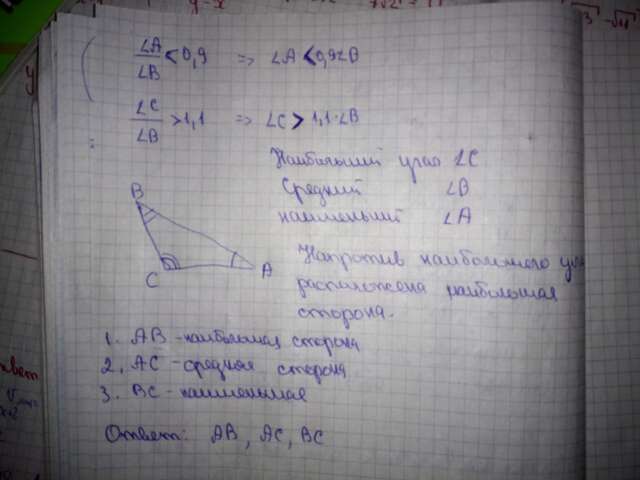 ∠A/∠B < 0,9 ⇒ ∠A < 0,9∠B
∠C/∠B > 1,1 ⇒ ∠C > 1,1∠B
Наибольший угол ∠C
Средний ∠B
наименьший ∠A
B
C
A
Напротив наибольшего
расположена наибольшая
сторона.
1. AB - наибольшая сторона
2. AC - средняя сторона
3. BC - наименьшая
Ответ: AB, AC, BC